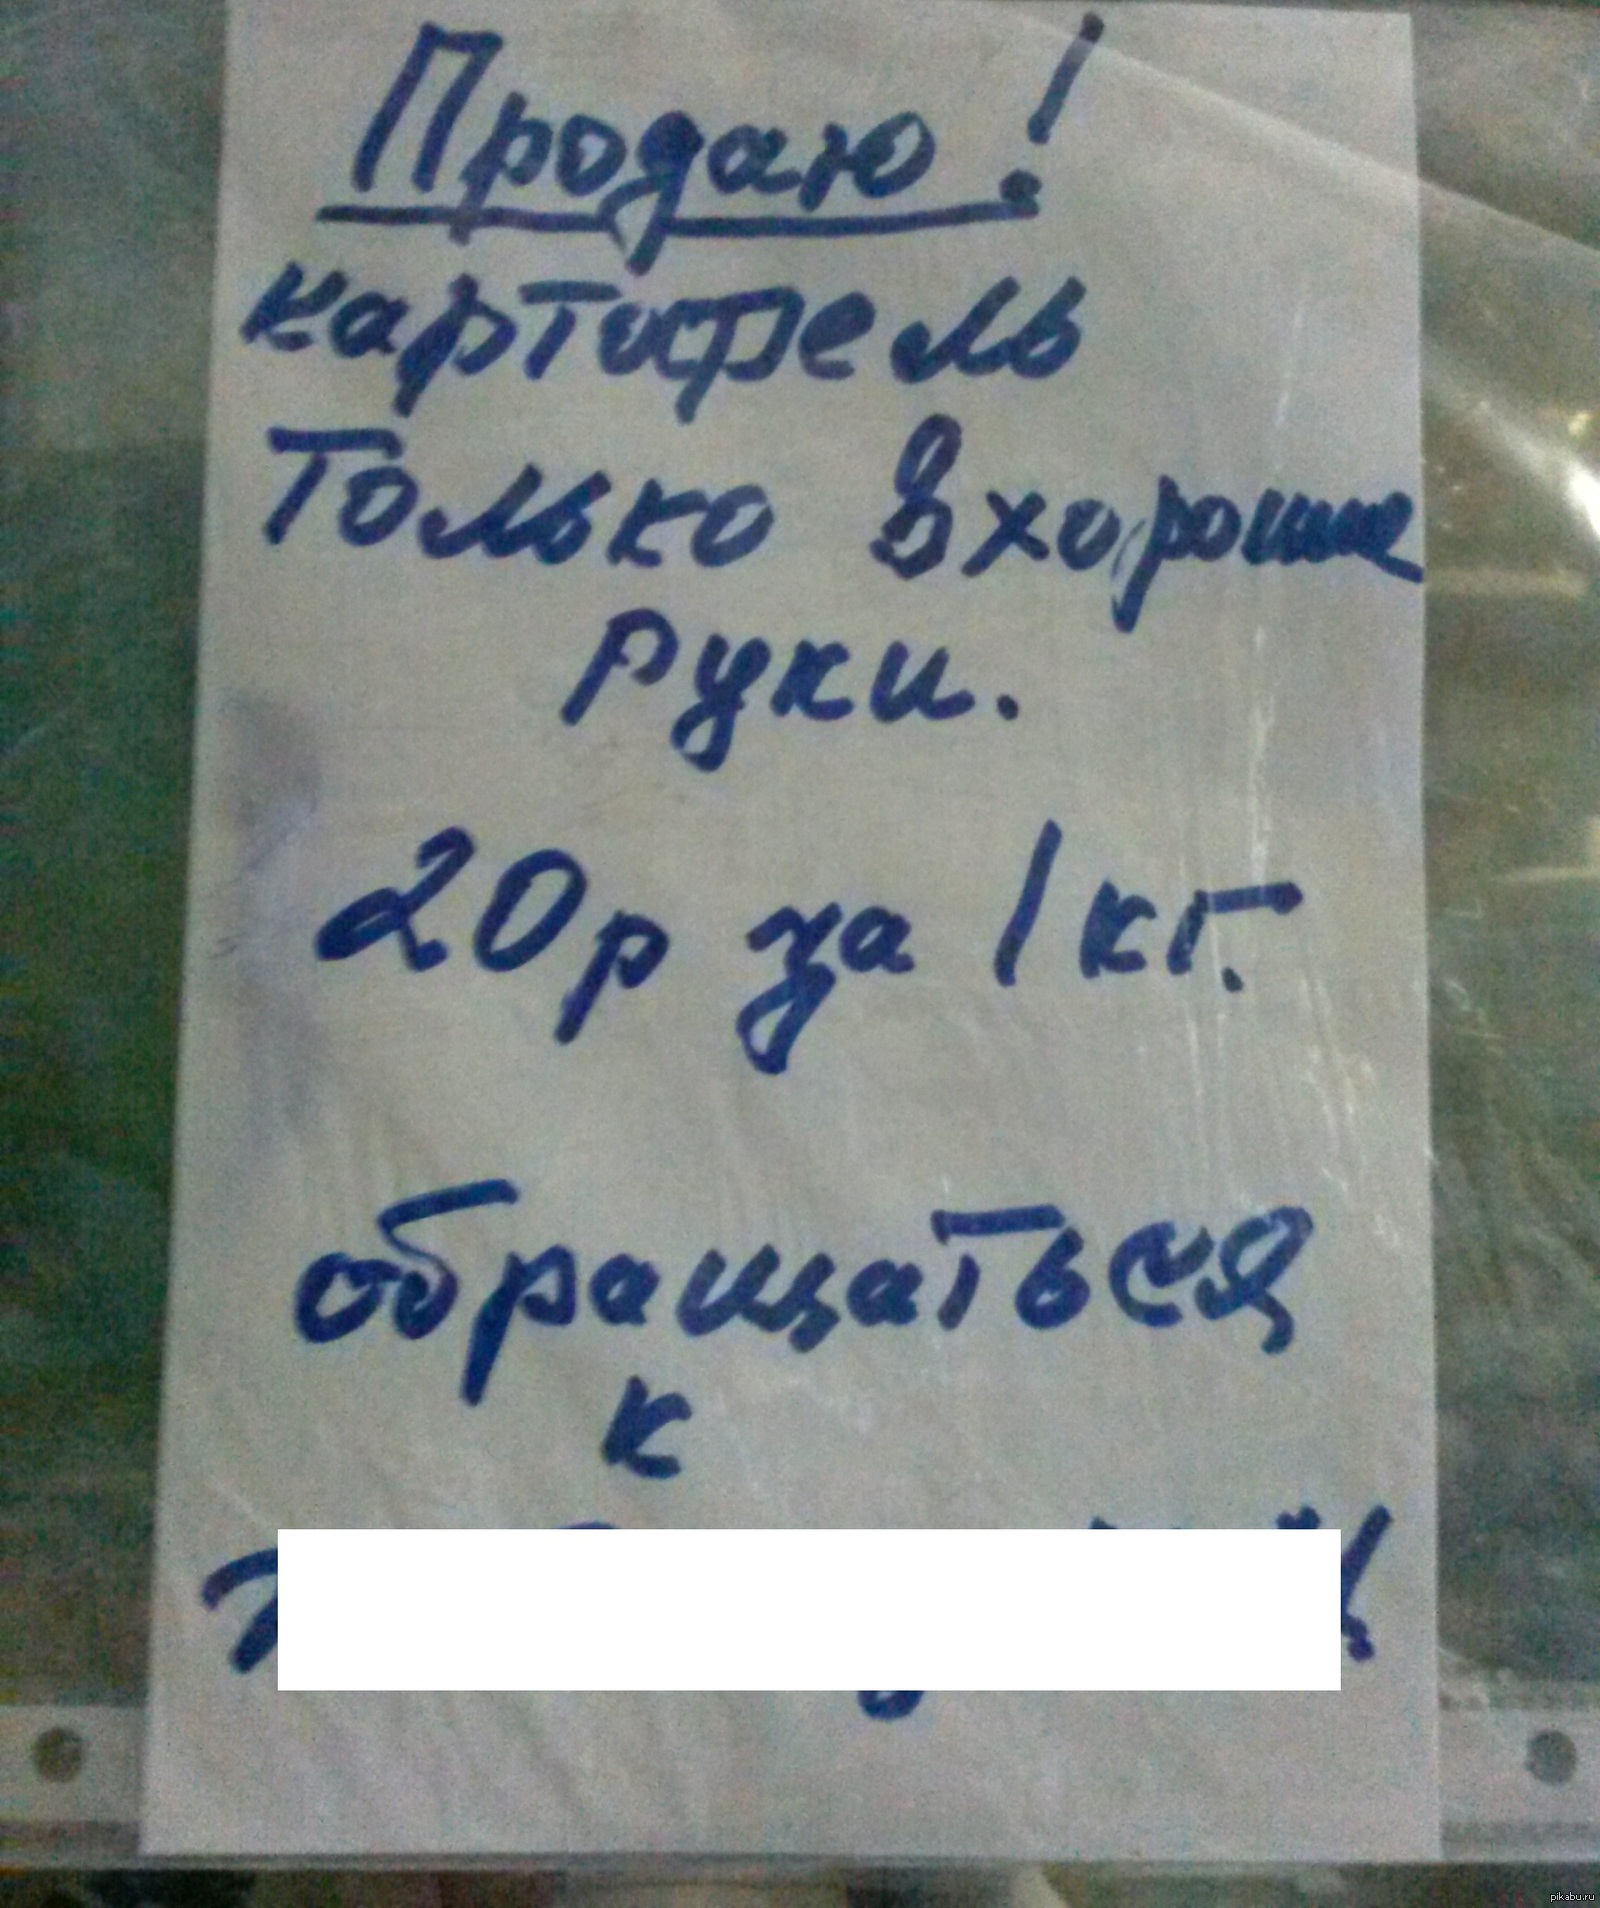 Продаю!
картофель
Только в хорошие
руки.
20р за 1кг.
обращаться
к
pikabu.ru